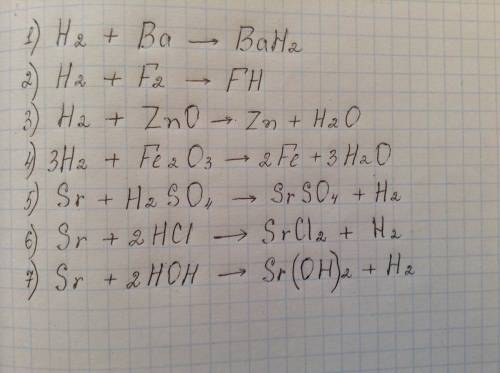 1) H₂ + Ba → BaH₂
2) H₂ + F₂ → FH
3) H₂ + ZnO → Zn + H₂O
4) 3H₂ + Fe₂O₃ → 2Fe + 3H₂O
5) Sr + H₂SO₄ → SrSO₄ + H₂
6) Sr + 2HCl → SrCl₂ + H₂
7) Sr + 2HOH → Sr(OH)₂ + H₂